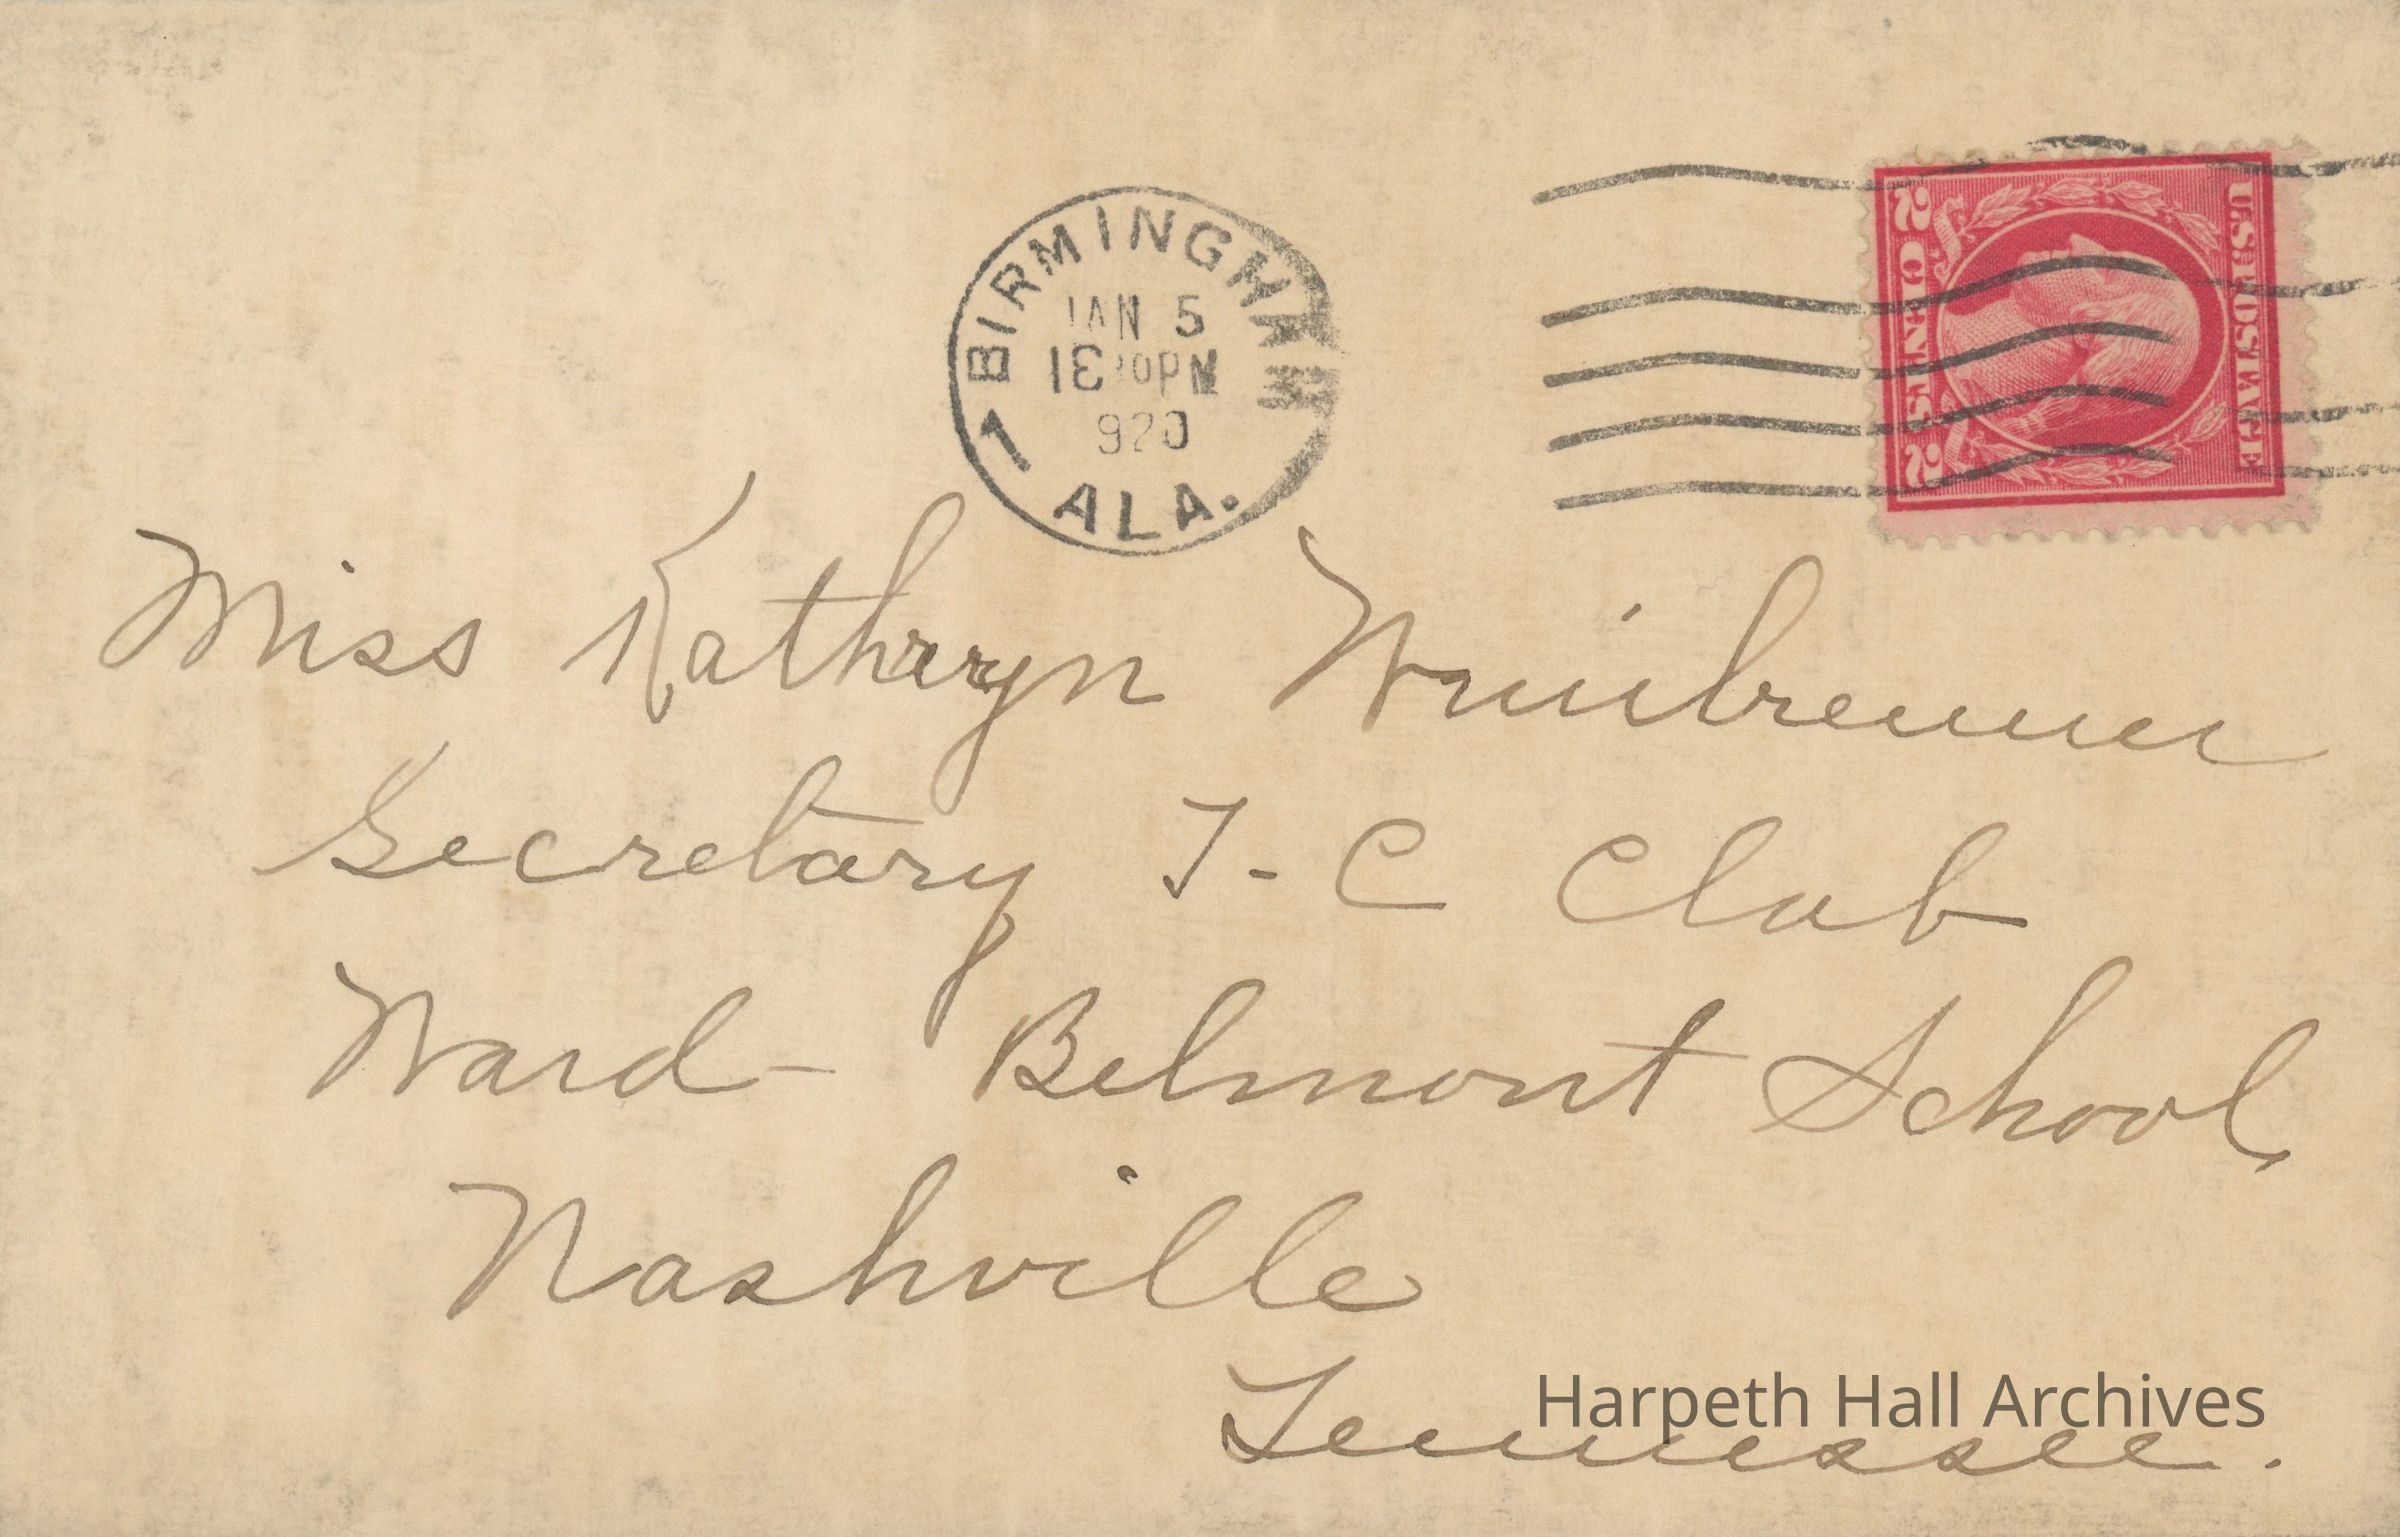 BIRMINGHAM
JAN 5
PM
920
ALA.
U.S. POSTAGE
2 CENTS 2
Miss Kathryn
Secretary T-C Club
Ward-Belmont School,
Nashville
Tennessee.
Harpeth Hall Archives